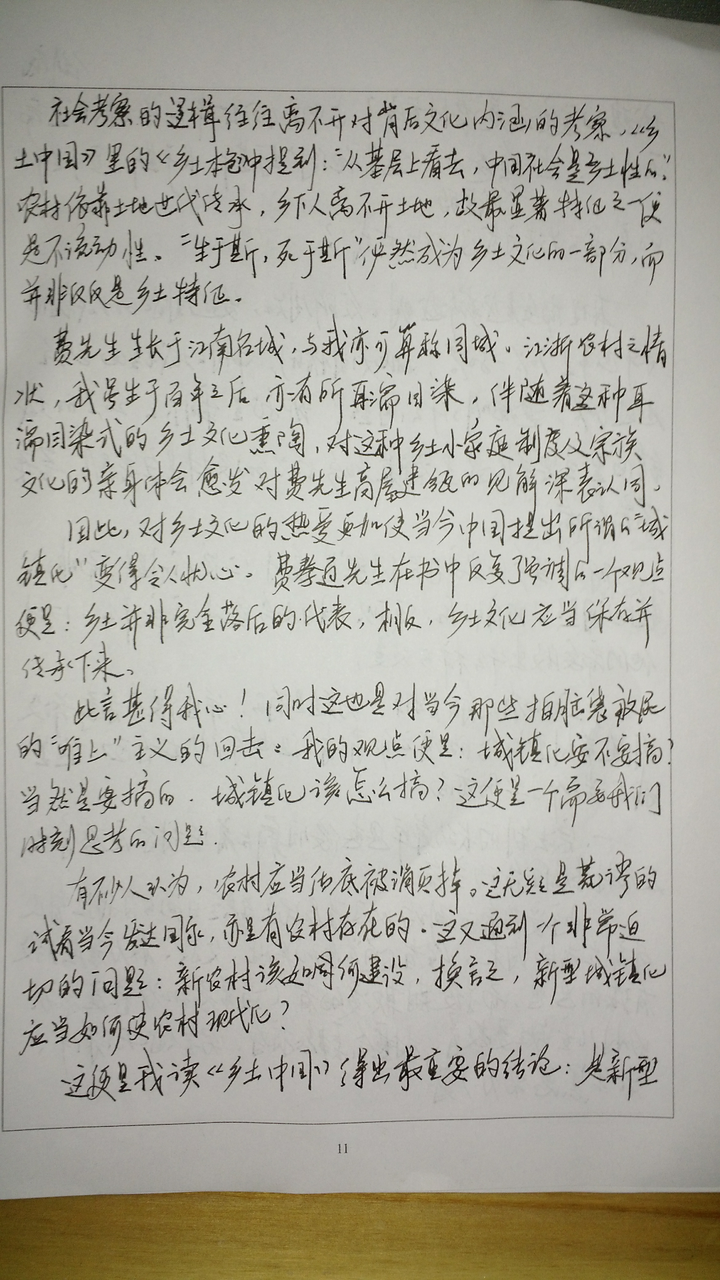 社会考察的逻辑往往离不开对背后文化内涵的考察，《乡
土中国》里的《乡土本色》中提到：“从基层上看去，中国社会是乡土性的”。
农村依靠土地世代传承，乡下人离不开土地，故最显著特征之一便
是不流动性。“生于斯，死于斯”俨然成为乡土文化的一部分，而
并非仅仅是乡土特征。
费先生生长于江南名城，与我亦可算称同城。江浙农村之情
状，我虽生于百年之后亦有所耳濡目染，伴随着这种耳
濡目染式的乡土文化熏陶，对这种乡土小家庭制度及宗族
文化的亲身体会愈发对费先生高屋建瓴的见解深表认同。
因此，对乡土文化的热爱更加使当今中国提出所谓的“城
镇化”变得令人忧心。费孝通先生在书中反复强调的一个观点
便是：乡土并非完全落后的代表，相反，乡土文化应当保存并
传承下来。
此言甚得我心！同时这也是对当今那些拍脑袋
的“唯上”主义的回击。我的观点便是：城镇化要不要搞？
当然是要搞的．城镇化该怎么搞？这便是一个需要我们
时刻思考的问题．
有不少人认为，农村应当彻底被消灭掉。这无疑是荒谬的
试看当今发达国家，亦是有农村存在的．这又遇到一个非常迫
切的问题：新农村该如何建设，换言之，新型城镇化
应当如何使农村现代化？
这便是我读《乡土中国》得出最重要的结论：是新型
11